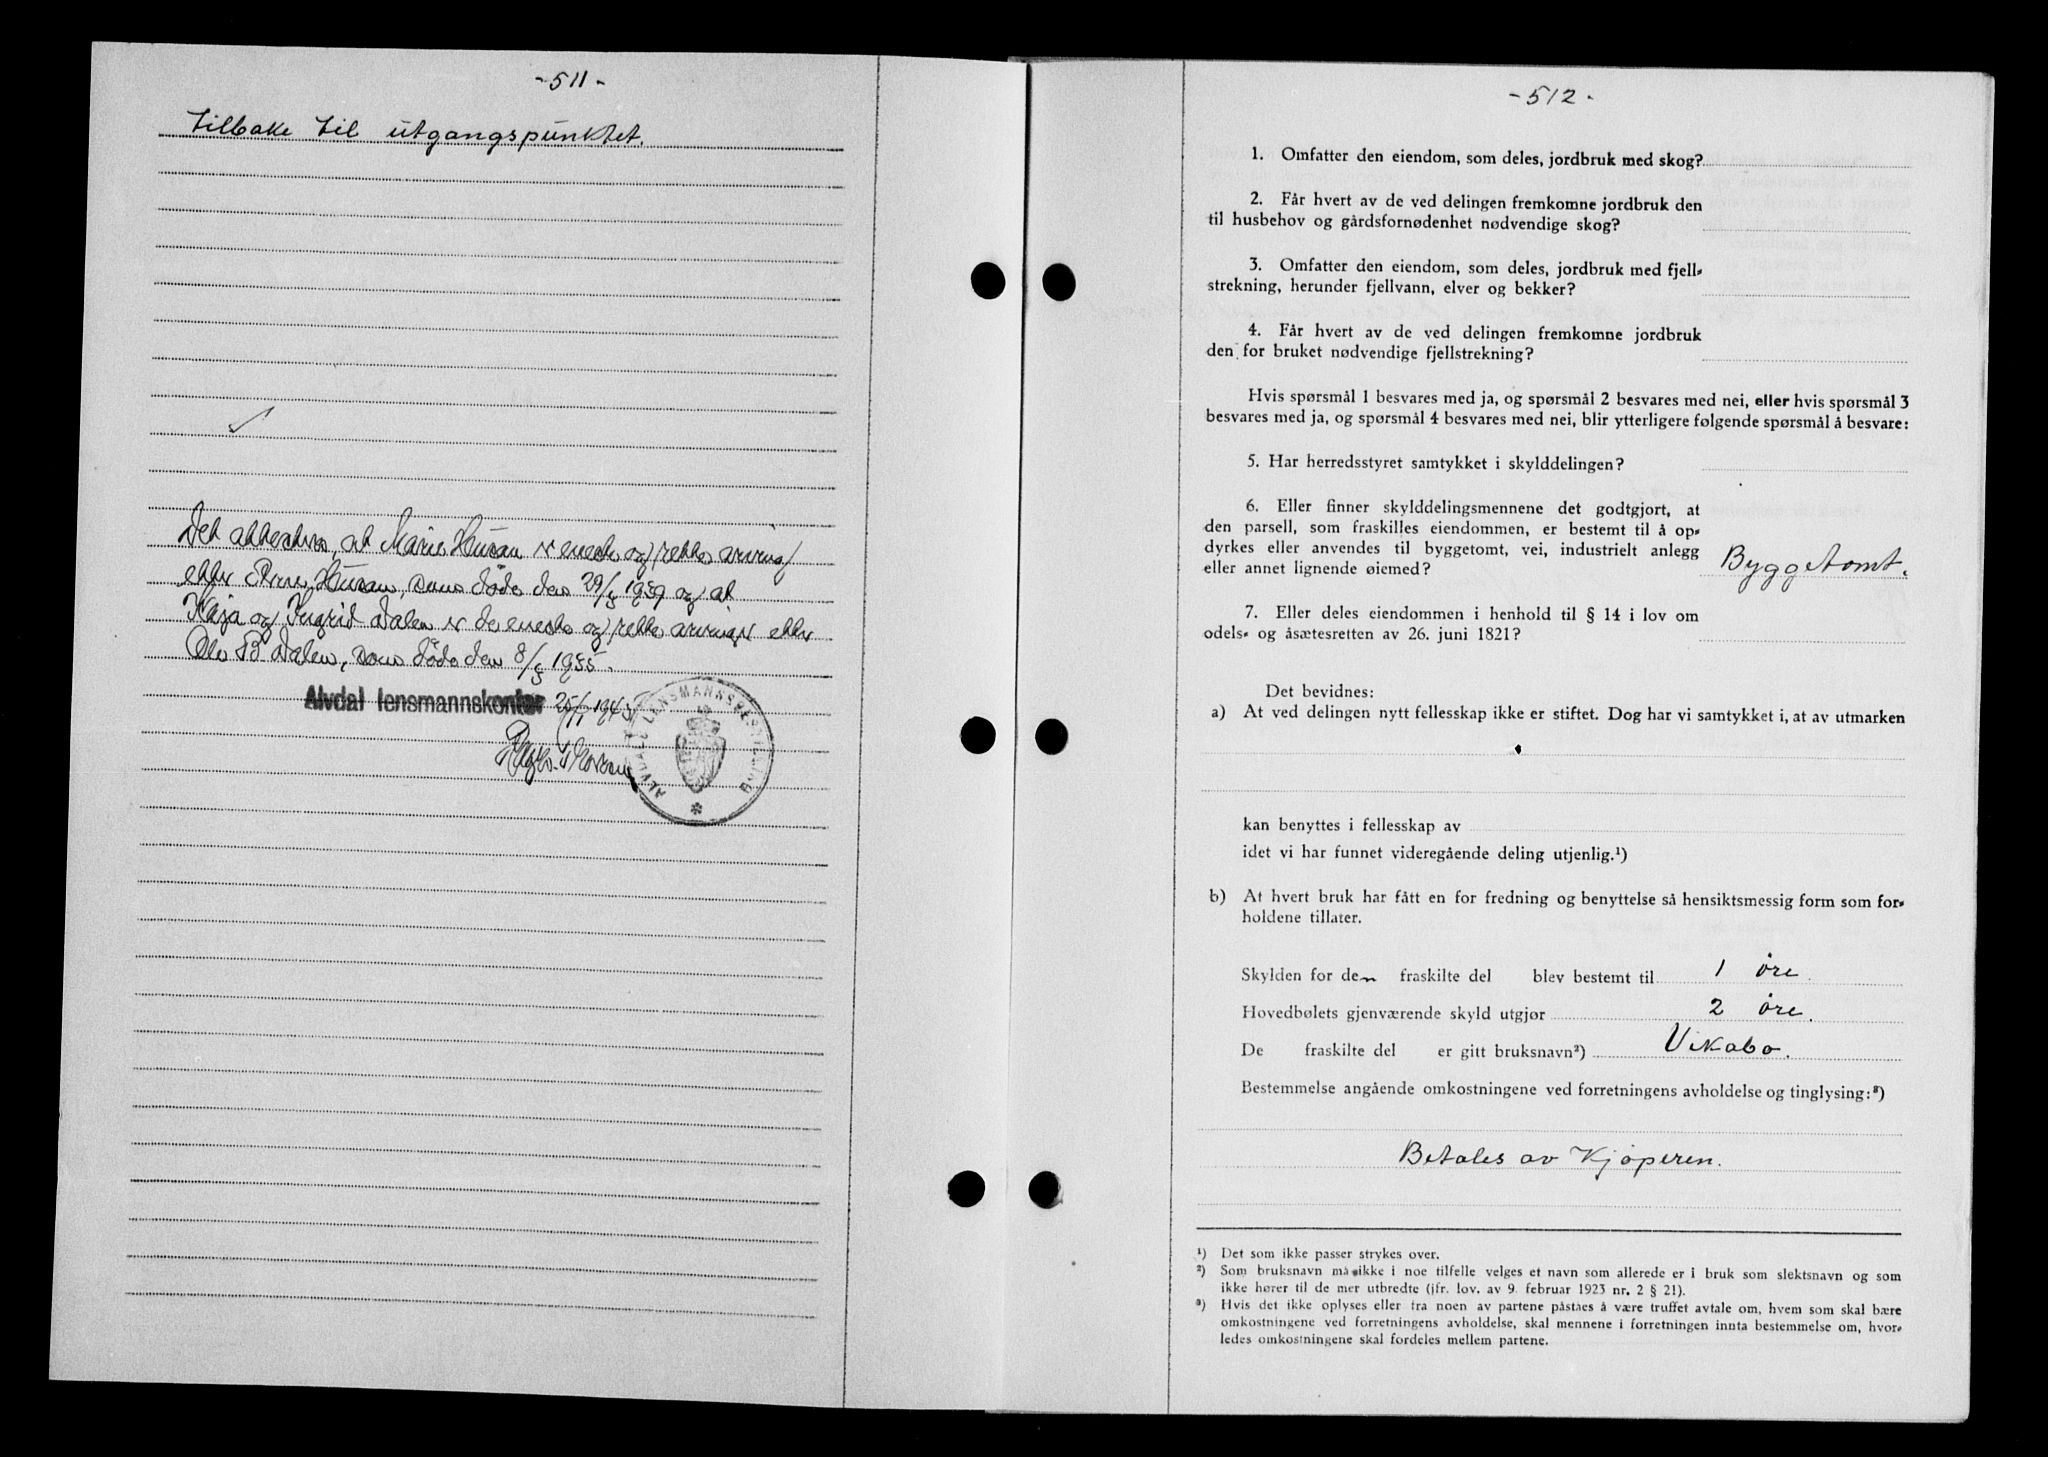 -511-
tilbake til utgangspunktet.
Det attesteres, at Marie Husan er eneste og rette arving
efter Arne Husan, som døde den 29/5 1939 og at
Kaja og Ingrid Dalen er de eneste og rette arvinger efter
Ole B Dalen, som døde den 8/5 1935.
Alvdal lensmannskontor 25/1 1945
ALVDAL LENSMANNSBESTILLING
-512-
1. Omfatter den eiendom, som deles, jordbruk med skog?
2. Får hvert av de ved delingen fremkomne jordbruk den
til husbehov og gårdsfornødenhet nødvendige skog?
3. Omfatter den eiendom, som deles, jordbruk med fjell-
strekning, herunder fjellvann, elver og bekker?
4. Får hvert av de ved delingen fremkomne jordbruk
den for bruket nødvendige fjellstrekning?
Hvis spørsmål 1 besvares med ja, og spørsmål 2 besvares med nei, eller hvis spørsmål 3
besvares med ja, og spørsmål 4 besvares med nei, blir ytterligere følgende spørsmål å besvare:
5. Har herredsstyret samtykket i skylddelingen?
6. Eller finner skylddelingsmennene det godtgjort, at
den parsell, som fraskilles eiendommen, er bestemt til å op-
dyrkes eller anvendes til byggetomt, vei, industrielt anlegg
eller annet lignende øiemed? Byggetomt.
7. Eller deles eiendommen i henhold til § 14 i lov om
odels- og åsætesretten av 26. juni 1821?
Det bevidnes:
a) At ved delingen nytt fellesskap ikke er stiftet. Dog har vi samtykket i, at av utmarken
kan benyttes i fellesskap av
idet vi har funnet videregående deling utjenlig.¹)
b) At hvert bruk har fått en for fredning og benyttelse så hensiktsmessig form som for-
holdene tillater.
Skylden for den fraskilte del blev bestemt til 1 øre.
Hovedbølets gjenværende skyld utgjør 2 øre.
De fraskilte del er gitt bruksnavn²) Vikabo.
Bestemmelse angående omkostningene ved forretningens avholdelse og tinglysing:³)
Betales av Kjøperen.
¹) Det som ikke passer strykes over.
²) Som bruksnavn må ikke i noe tilfelle velges et navn som allerede er i bruk som slektsnavn og som
ikke hører til de mer utbredte (jfr. lov. av 9. februar 1923 nr. 2 § 21).
³) Hvis det ikke oplyses eller fra noen av partene påståes å være truffet avtale om, hvem som skal bære
omkostningene ved forretningens avholdelse, skal mennene i forretningen innta bestemmelse om, hvor-
ledes omkostningene skal fordeles mellem partene.